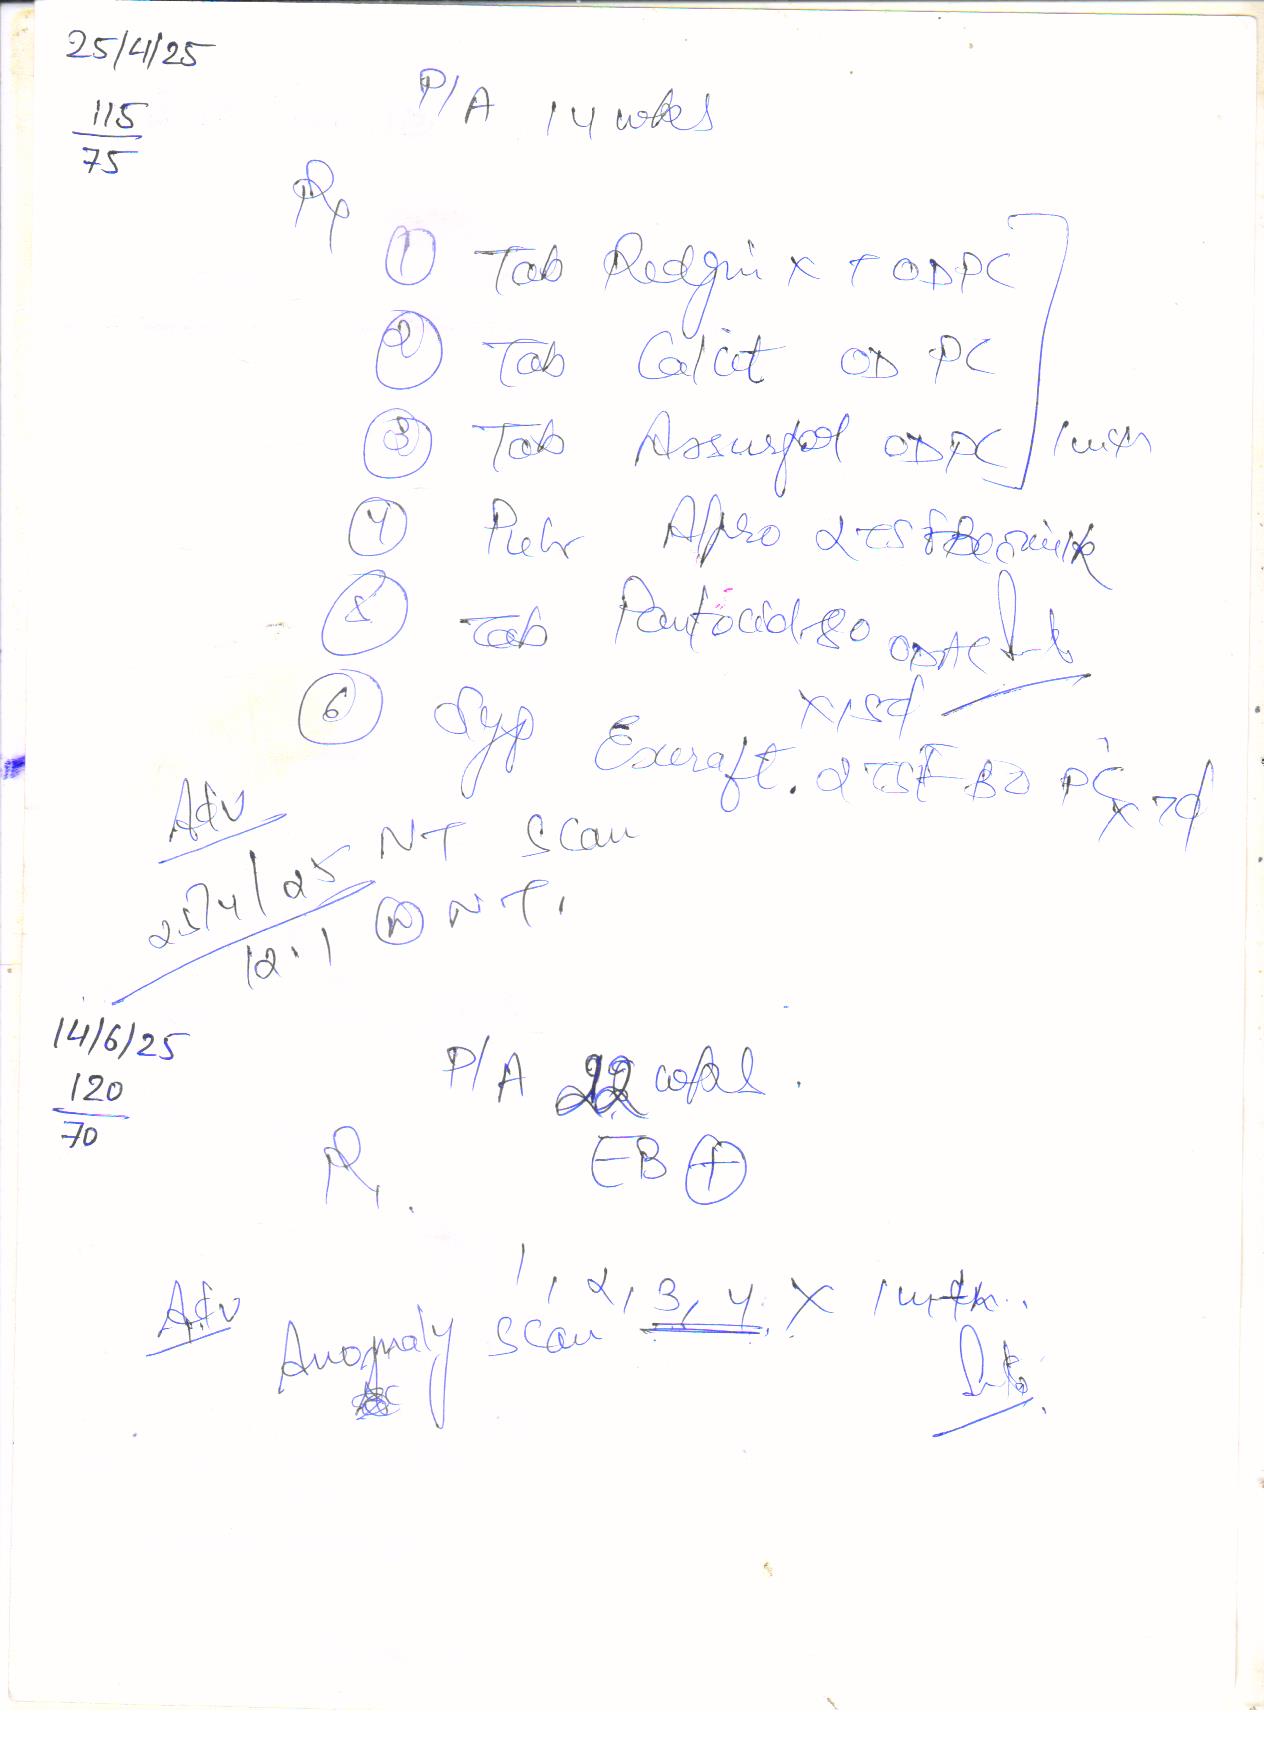 25/4/25
115
75
P/A 14 wks
Rx
① Tab Redgin x T OD PC
② Tab Calcit OD PC
③ Tab Assurfol OD PC ] 1 mth
④ Pulv Alpro 2TSF BD milk
⑤ Tab Pantocid 80 OD AC
x 15d
⑥ Syp Exeraft. 2TSF BD PC x 7d
Adv
NT Scan
25/4/25
12.1 Ⓝ NT.
14/6/25
120
70
P/A 22 wks.
R. FB ⊕
1, 2, 3, 4 x 1 mth.
Adv
Anomaly Scan